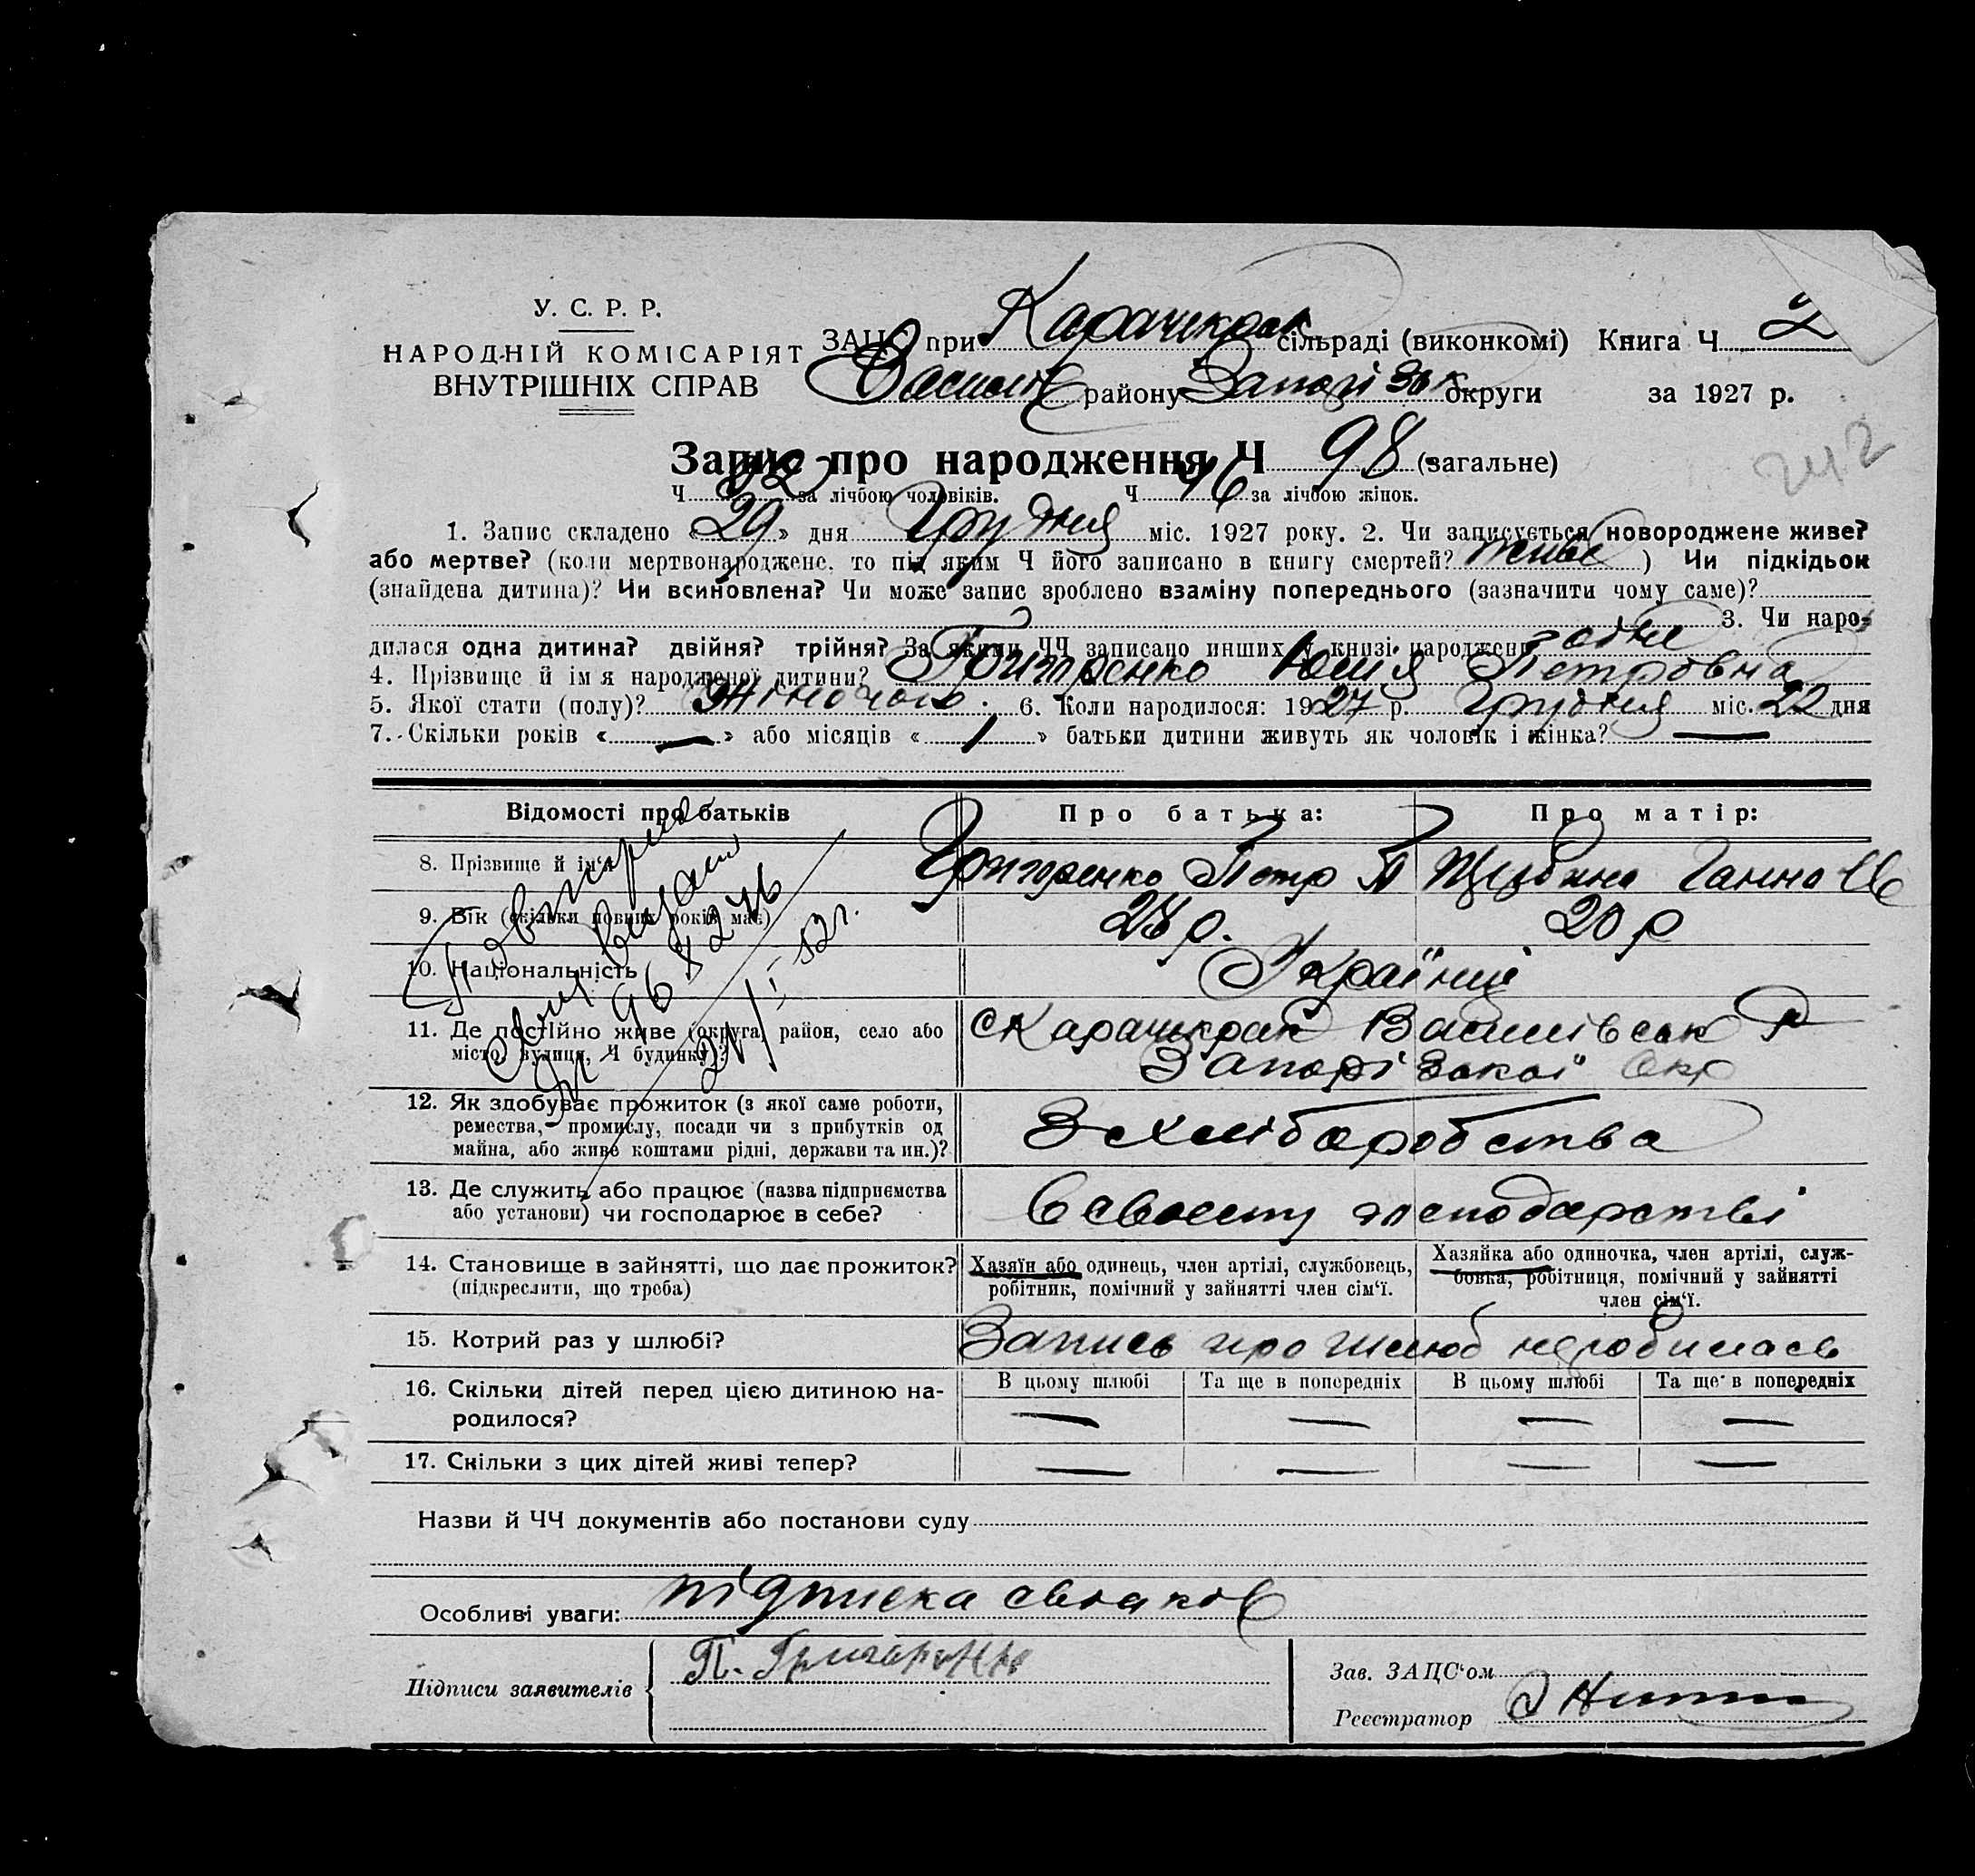 У. С. Р. Р.
НАРОДНІЙ КОМІСАРІЯТ
ВНУТРІШНІХ СПРАВ
ЗАЦС при Карачекрак сільраді (виконкомі) Книга Ч 2
Васил району Запорізьк округи за 1927 р.
242
Запис про народження Ч 98 (загальне)
Ч 52 за лічбою чоловіків. Ч 46 за лічбою жінок.
1. Запис складено « 29 » дня Грудня міс. 1927 року. 2. Чи записується новороджене живе?
або мертве? (коли мертвонароджене, то під яким Ч його записано в книгу смертей? живе ) Чи підкідьок
(знайдена дитина)? Чи всиновлена? Чи може запис зроблено взаміну попереднього (зазначити чому саме)?
3. Чи наро-
дилася одна дитина? двійня? трійня? За якими ЧЧ записано инших у книзі народжень? одне
4. Прізвище й ім'я народженої дитини? Григоренко Юлія Петровна
5. Якої стати (полу)? Жіночого. 6. Коли народилося: 1927 р. Грудня міс. 22 дня
7. Скільки років « — » або місяців « / » батьки дитини живуть як чоловік і жінка? —
Відомості про батьків Про батька: Про матір:
8. Прізвище й ім'я Григоренко Петр П Щербина Ганна
9. Вік (скільки повних років має) 28 р. 20 р
10. Національність Українці
11. Де постійно живе (округа, район, село або
місто, вулиця, Ч будинку)? с Карачекрак Василівськ Р
Запорізької Окр
12. Як здобуває прожиток (з якої саме роботи,
ремества, промислу, посади чи з прибутків од
майна, або живе коштами рідні, держави та ин.)? З хліборобства
13. Де служить або працює (назва підприємства
або установи) чи господарює в себе? В своему господарстві
14. Становище в зайнятті, що дає прожиток?
(підкреслити, що треба)
Хазяїн або одинець, член артілі, службовець,
робітник, помічний у зайнятті член сім'ї.
Хазяйка або одиночка, член артілі, служ-
бовка, робітниця, помічний у зайнятті
член сім'ї.
15. Котрий раз у шлюбі? Запись про шлюб не робилась
16. Скільки дітей перед цією дитиною на-
родилося?
В цьому шлюбі Та ще в попередніх В цьому шлюбі Та ще в попередніх
— — — —
17. Скільки з цих дітей живі тепер? — — — —
Назви й ЧЧ документів або постанови суду
Особливі уваги: підписка
Підписи заявителів П. Григоренко
Зав. ЗАЦС'ом
Реєстратор